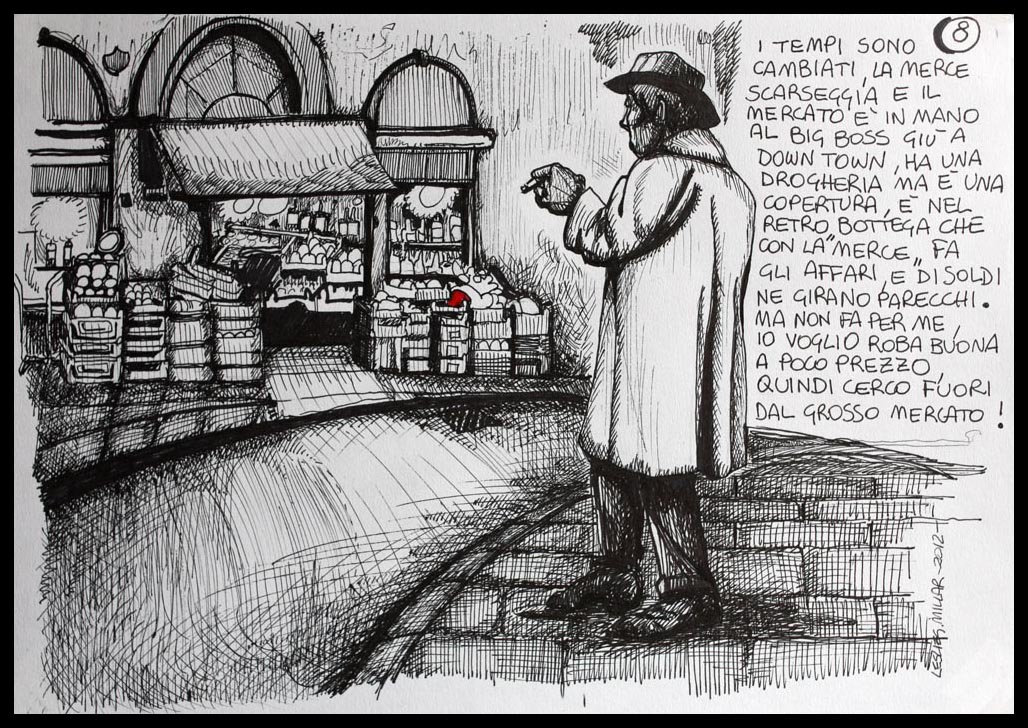 8
I TEMPI SONO
CAMBIATI, LA MERCE
SCARSEGGIA E IL
MERCATO E' IN MANO
AL BIG BOSS GIU' A
DOWN TOWN, HA UNA
DROGHERIA MA E' UNA
COPERTURA, E' NEL
RETRO BOTTEGA CHE
CON LA "MERCE" FA
GLI AFFARI, E DI SOLDI
NE GIRANO PARECCHI.
MA NON FA PER ME,
IO VOGLIO ROBA BUONA
A POCO PREZZO,
QUINDI CERCO FUORI
DAL GROSSO MERCATO!
MILLAR-2012